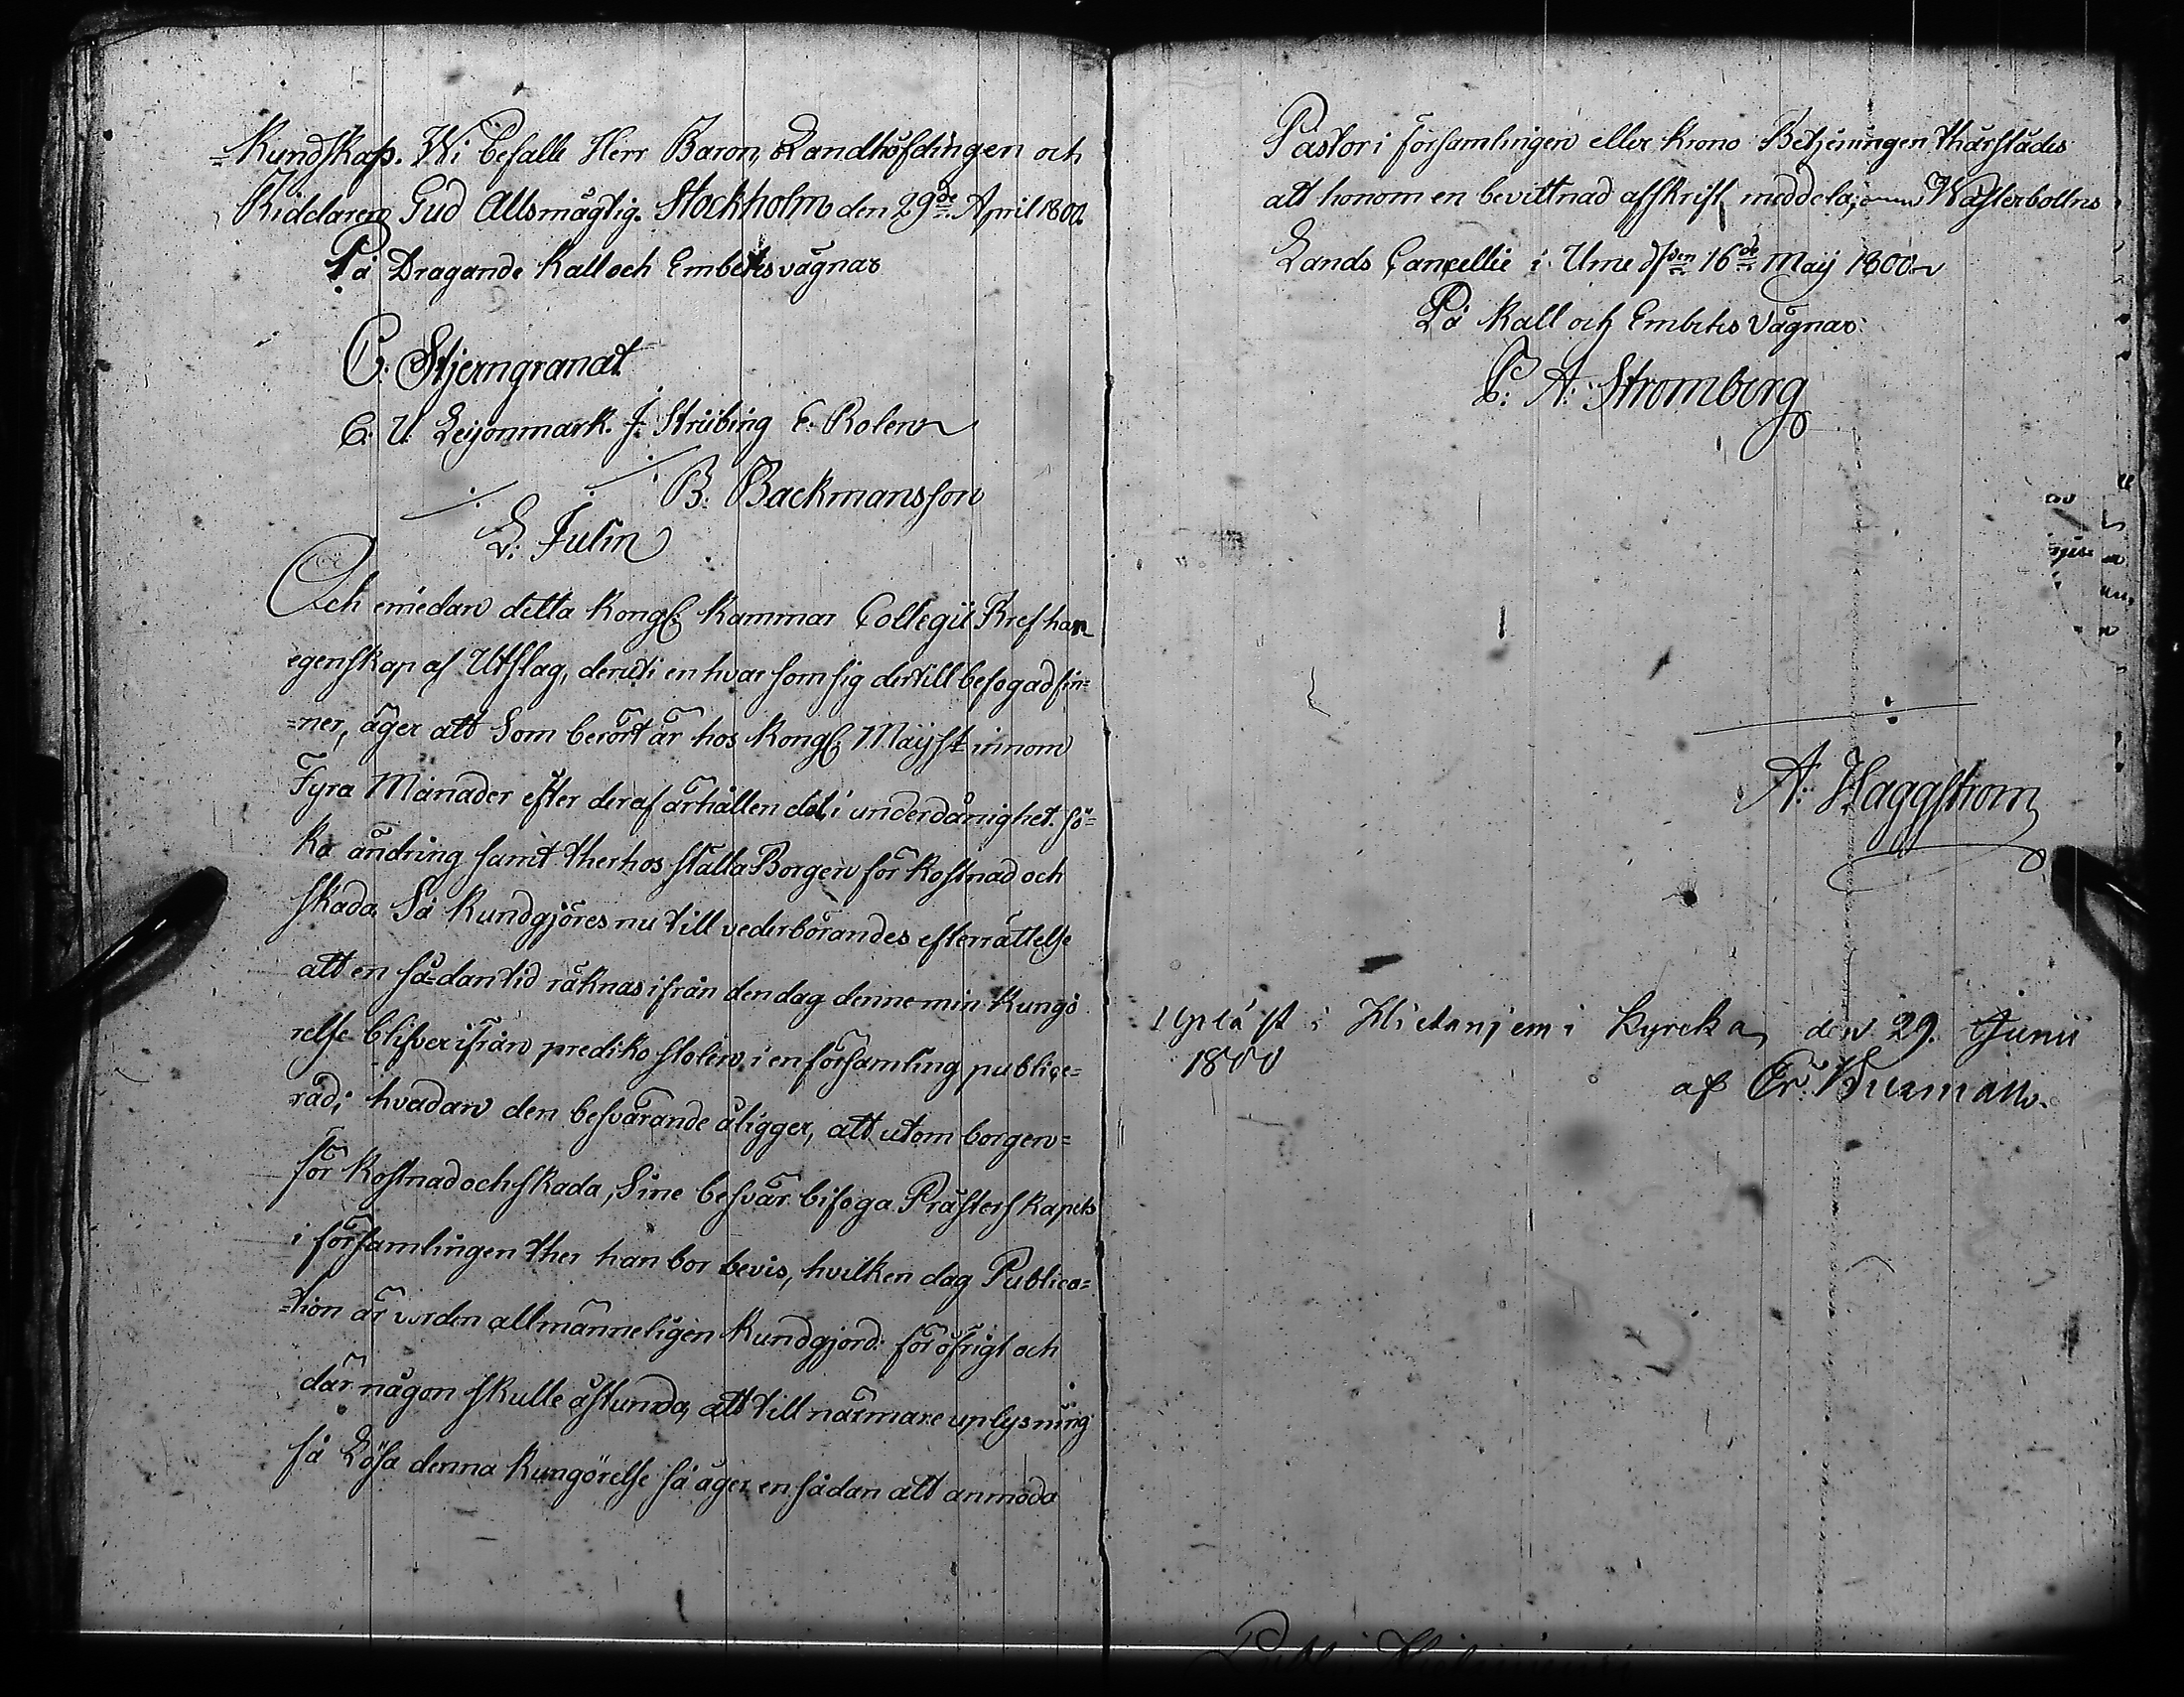 =Kundskap. Wi befalle Herr Baron, Landthöfdingen och
Riddaren Gud Allsmägtig. Stockholm den 29de April 1800.
På Dragande Kall och Embetes vägnar
C. Stjerngranat
C: U: Leijonmark. J: Strübing E. Rolen
B: Backmansson
L: Julin
Och emedan detta Kongl: Kammar Collegii Bref har
egenskap af Utslag, deruti en hvar som sig dertill befogad fin=
=ner, äger att Som berört är hos Kongl: Maijst innom
Fyra Månader efter deraf ärhållen del i underdånighet sö=
ka ändring samt therhos ställa Borgen för Kostnad och
skada. Så Kundgjöres nu till vederbörandes efterrättelse
att en så=dan tid räknas ifrån den dag denne min Kungö
relse blifver ifrån prediko stolen i en församling publice=
rad; hvadan den besvärande åligger, att utom borgen=
för Kostnad och skada, Sine besvär bifoga Prästerskapets
i församlingen ther han bor bevis, hvilken dag Publica=
=tion är vorden allmänneligen Kundgjord: för öfrigt och
där någon skulle åstunda, att till närmare uplysning
få Lösa denna Kungörelse så äger en sådan att anmoda
Pastor i Församlingen eller Krono Betjeningen thärstädes
att honom en bevittnad afskrift meddela; Wästerbottns
Lands Cancellie i Umeå den 16de Maij 1800
På Kall och Embetes Vägnar
P: A: Stromberg
A: Häggstrom
Uplä st i Hietanjemi Kyrcka den 29. Junii
1800
af Er: